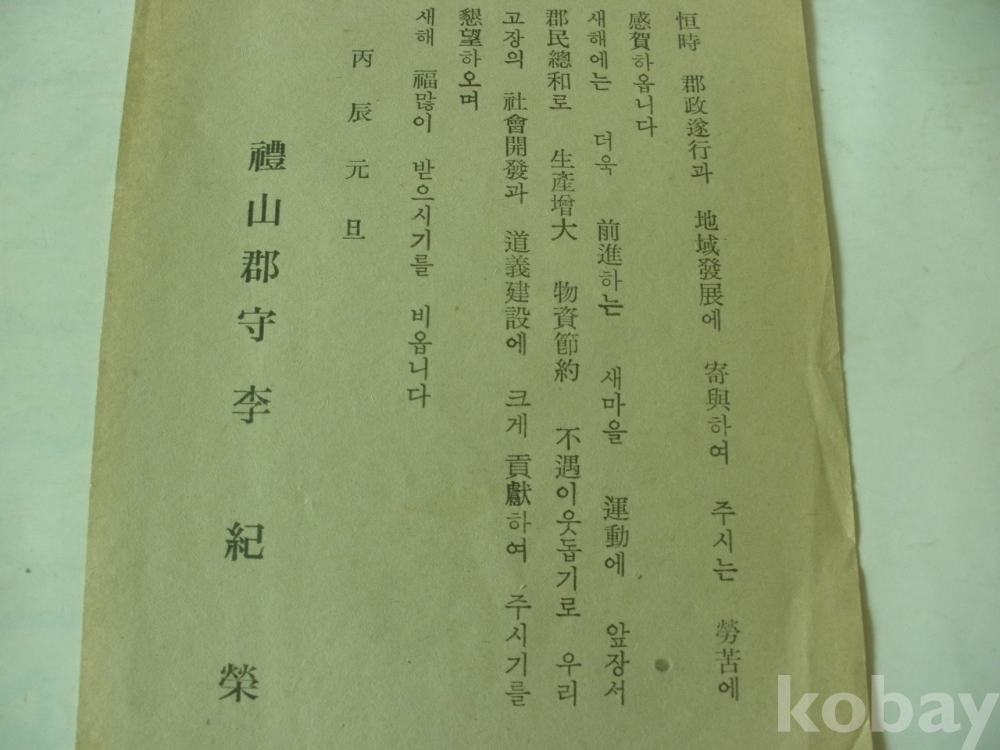 恒時 郡政遂行과 地域發展에 寄與하여 주시는 勞苦에
感賀하옵니다
새해에는 더욱 前進하는 새마을 運動에 앞장서
郡民總和로 生產增大 物資節約 不遇이웃돕기로 우리
고장의 社會開發과 道義建設에 크게 貢獻하여 주시기를
懇望하오며
새해 福많이 받으시기를 비옵니다
丙辰元旦
禮山郡守 李紀榮
kobay